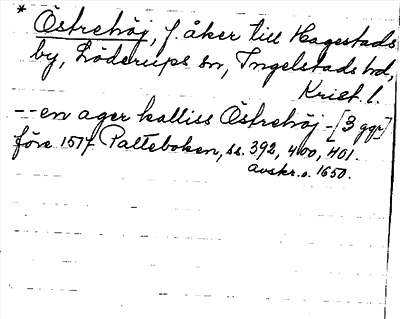 * Östrehöj, f. åker till Hagestads
by, Löderups sn, Ingelstads hd,
Krist. l.
-- en ager kalliss Östrehöj - [3 ggr]
före 1517 Palteboken, ss. 392, 400, 401.
Avskr. o. 1650.